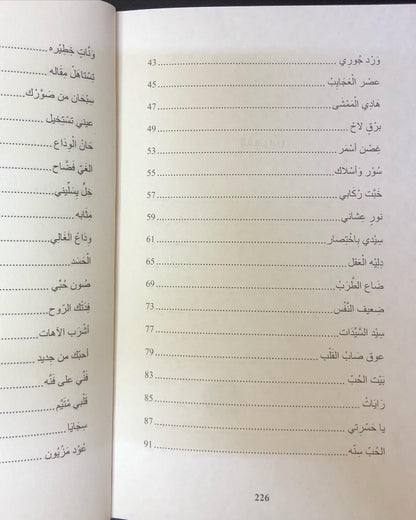 وَرْد جُوري ........ 43
عصْر الْعَجَايِبْ ........ 45
هَادِي الْمَمْشَى ........ 47
بَرْقٍ لاحْ ........ 49
غِصْنٍ أسْمَر ........ 53
سُوْر وَأسْلاك ........ 55
خَبّت رْكَابي ........ 57
نور عِشاني ........ 59
سِيْدي باخْتِصار ........ 61
دِلِيْه الْعقل ........ 65
ضَاع الطَّرَبْ ........ 69
ضعِيف النَّفْس ........ 73
سِيْد السَّيِّدَات ........ 77
عوق صَابْ الْقَلْب ........ 79
بَيْت الْحُبّ ........ 83
رَايَاتْ ........ 85
يا حَسْرِتي ........ 87
الْحُبّ سِنّه ........ 91
226
وَنَّاتٍ خَطِيْره ........
تِسْتَاهَلْ مِقَاله ........
سِبْحَان من صَوَّرك ........
عيني تسْتِخيل ........
حَانْ الْوِدَاعْ ........
الْغَيّ فَضَّاح ........
خَلّ يسَلِّيني ........
مثَابه ........
وِدَاعْ الْغَالِي ........
الْحَسَد ........
صُون حُبّي ........
فِدَتْك الرّوح ........
أشْرَب الآهات ........
أحبّك من جديد ........
فَنِّي على فَنّه ........
قَلْبي متَيَّم ........
سِجَايَا ........
عُوْد مَزْيُون ........